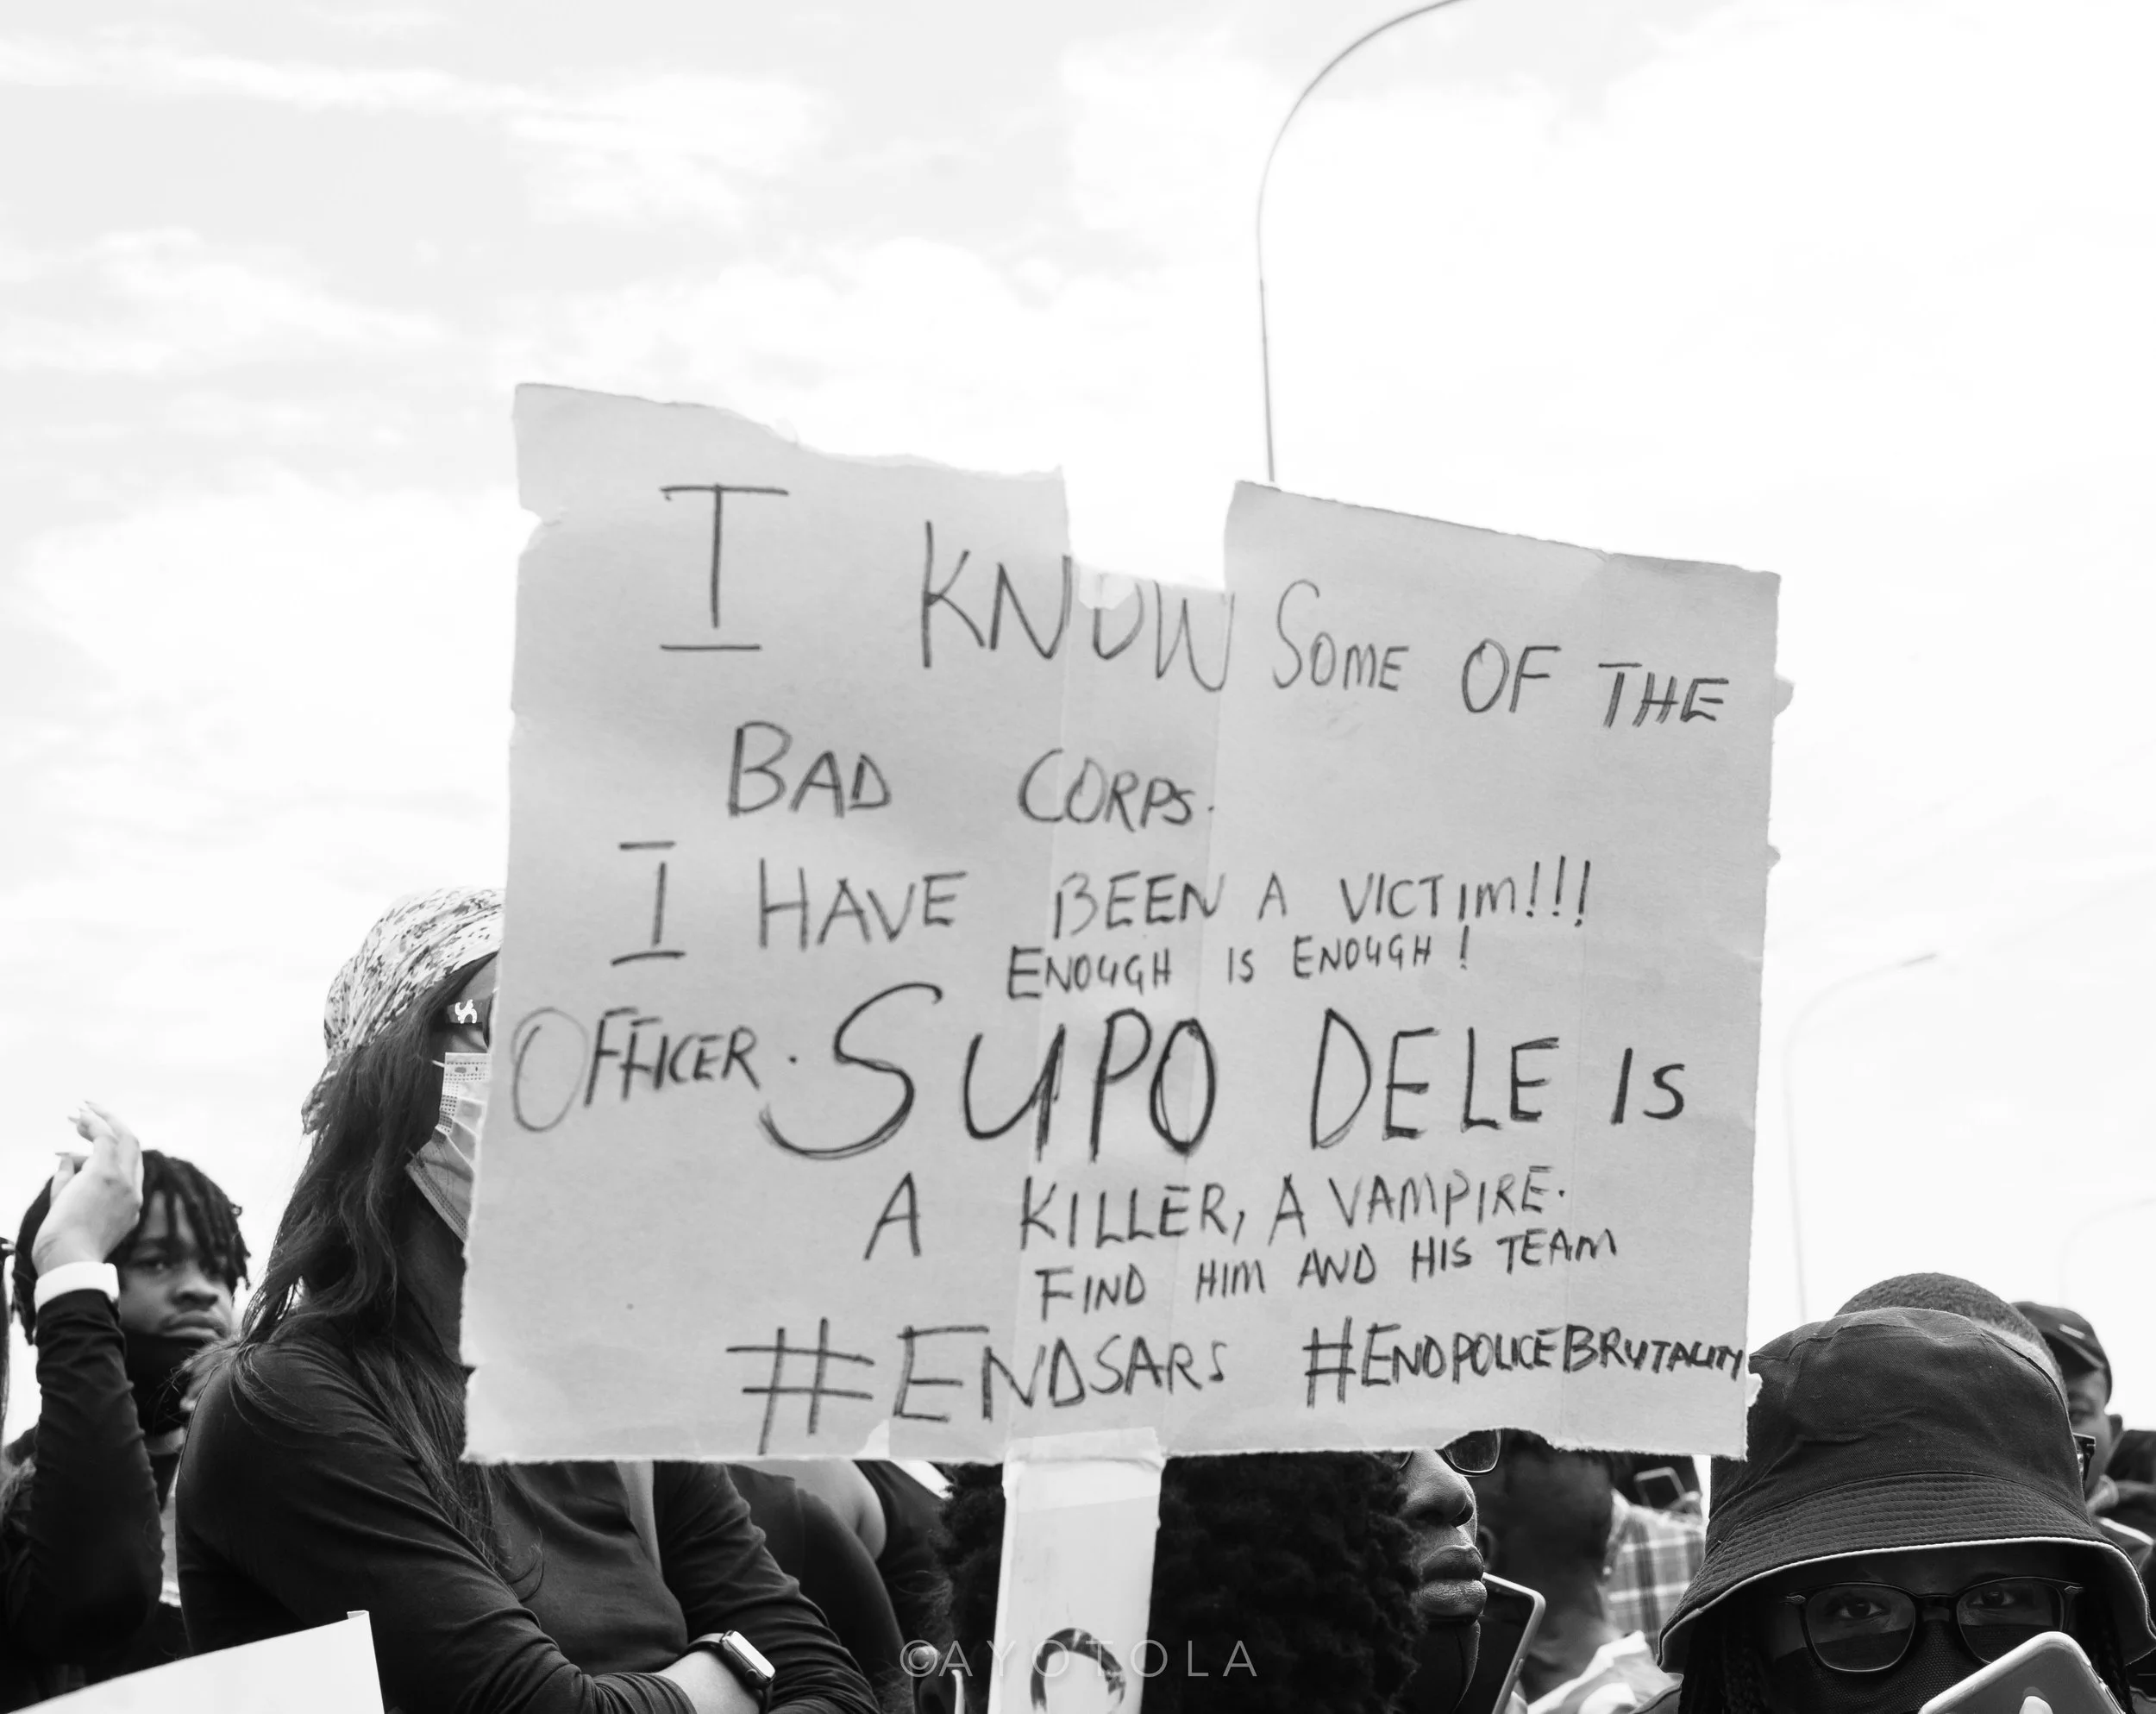 I KNOW SOME OF THE
BAD CORPS.
I HAVE BEEN A VICTIM!!!
ENOUGH IS ENOUGH!
OFFICER. SUPO DELE IS
A KILLER, A VAMPIRE.
FIND HIM AND HIS TEAM
#ENDSARS #ENDPOLICEBRUTALITY
©AYOTOLA